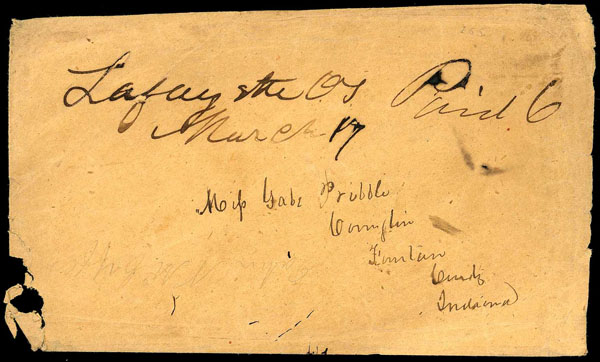 Lafayette O. T. Paid 6
March 17
Miss Gabe Pribble
Covington
Fountain
County
Indiana